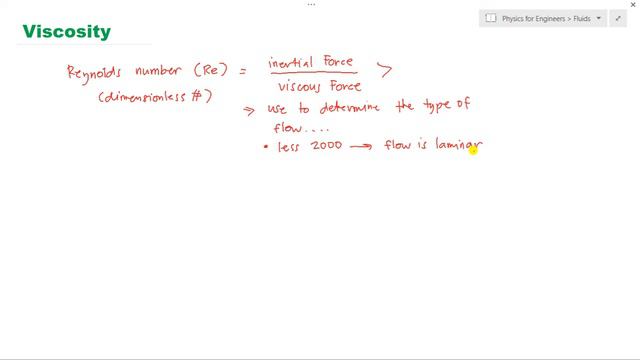 Physics for Engineers > Fluids
Viscosity
Reynolds number (Re) = inertial Force / viscous Force >
(dimensionless #)
⇒ use to determine the type of
flow....
• less 2000 → flow is laminar